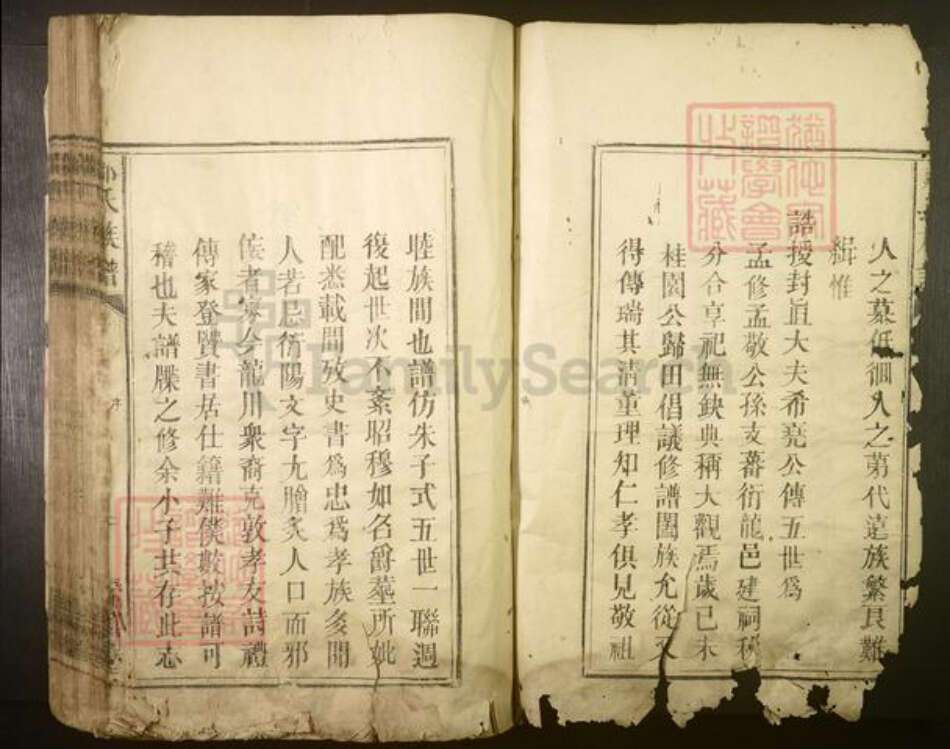 人之墓低徊人之第代遠族繁艮難
緝惟
誥授封直大夫希堯公傳五世爲
孟修孟敬公孫支蕃衍龍邑建祠
分合享祀無缺典稱大觀焉歲己未
桂園公歸田倡議修譜闔族允從又
得傳瑞其清董理知仁孝俱見敬祖
睦族間也譜仿朱子式五世一聯週
復起世次不紊昭穆如名爵塟所妣
配悉載間攷史書爲忠爲孝族多聞
人若忌衍陽文字尤膾炙人口而邪
矦者寔今龍川衆裔克敦孝友詩禮
傳家登賢書居仕籍難僕數按諸可
稽也夫譜牒之修余小子共存此志
氏族譜
FamilySearch